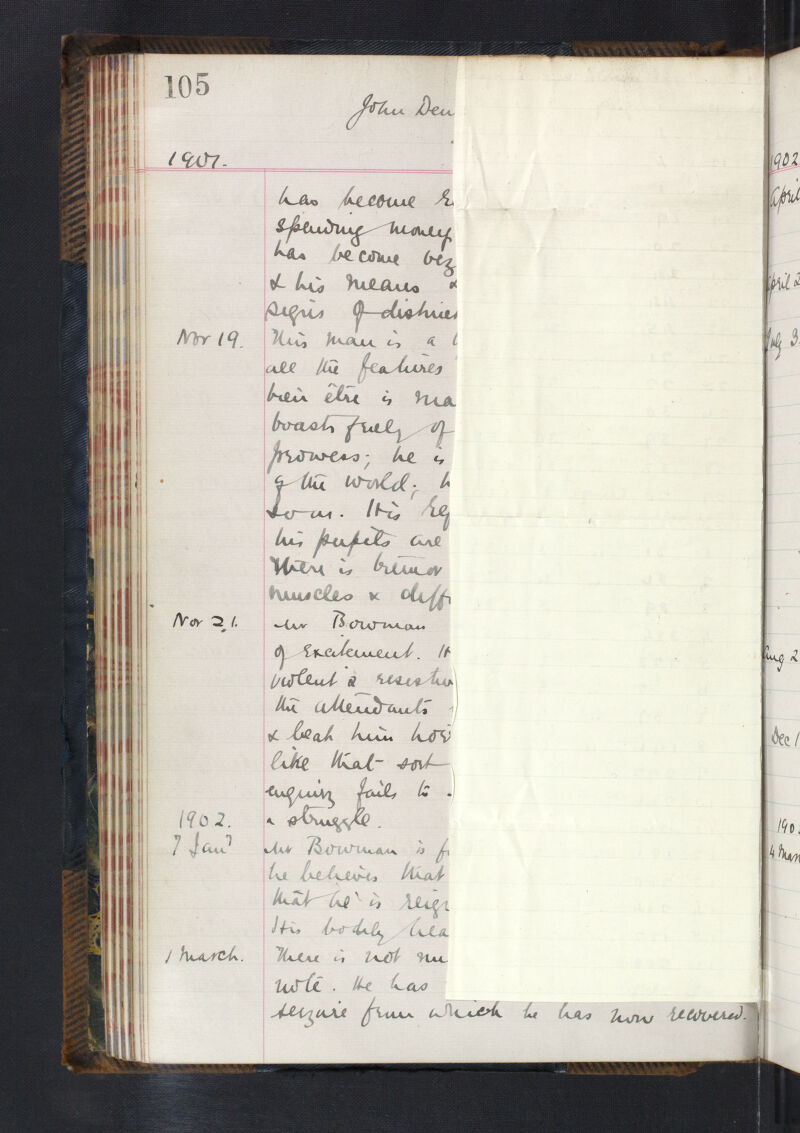 105
John Den
1901.
has become
spending money
has become
& his means &
signs of
Nor 19. This man is a
all the features
bien être is ma
boasts freely of
prowess; he is
of the world; h
so on. His
his pupils are
There is tremor
muscles & diff
Nov 21. Mr Bowman
of excitement. H
violent &
the attendants
& beat him
like that sort
enquiry fails to
1902. a struggle.
7 Jany Mr Bowman is f
he believes that
that he is reign
His bodily hea
1 March. There is not mu
note. He has
seizure from which he has now recovered.
1902
April
April 2
July 3
Aug 2
Dec 1
190
4 Mar